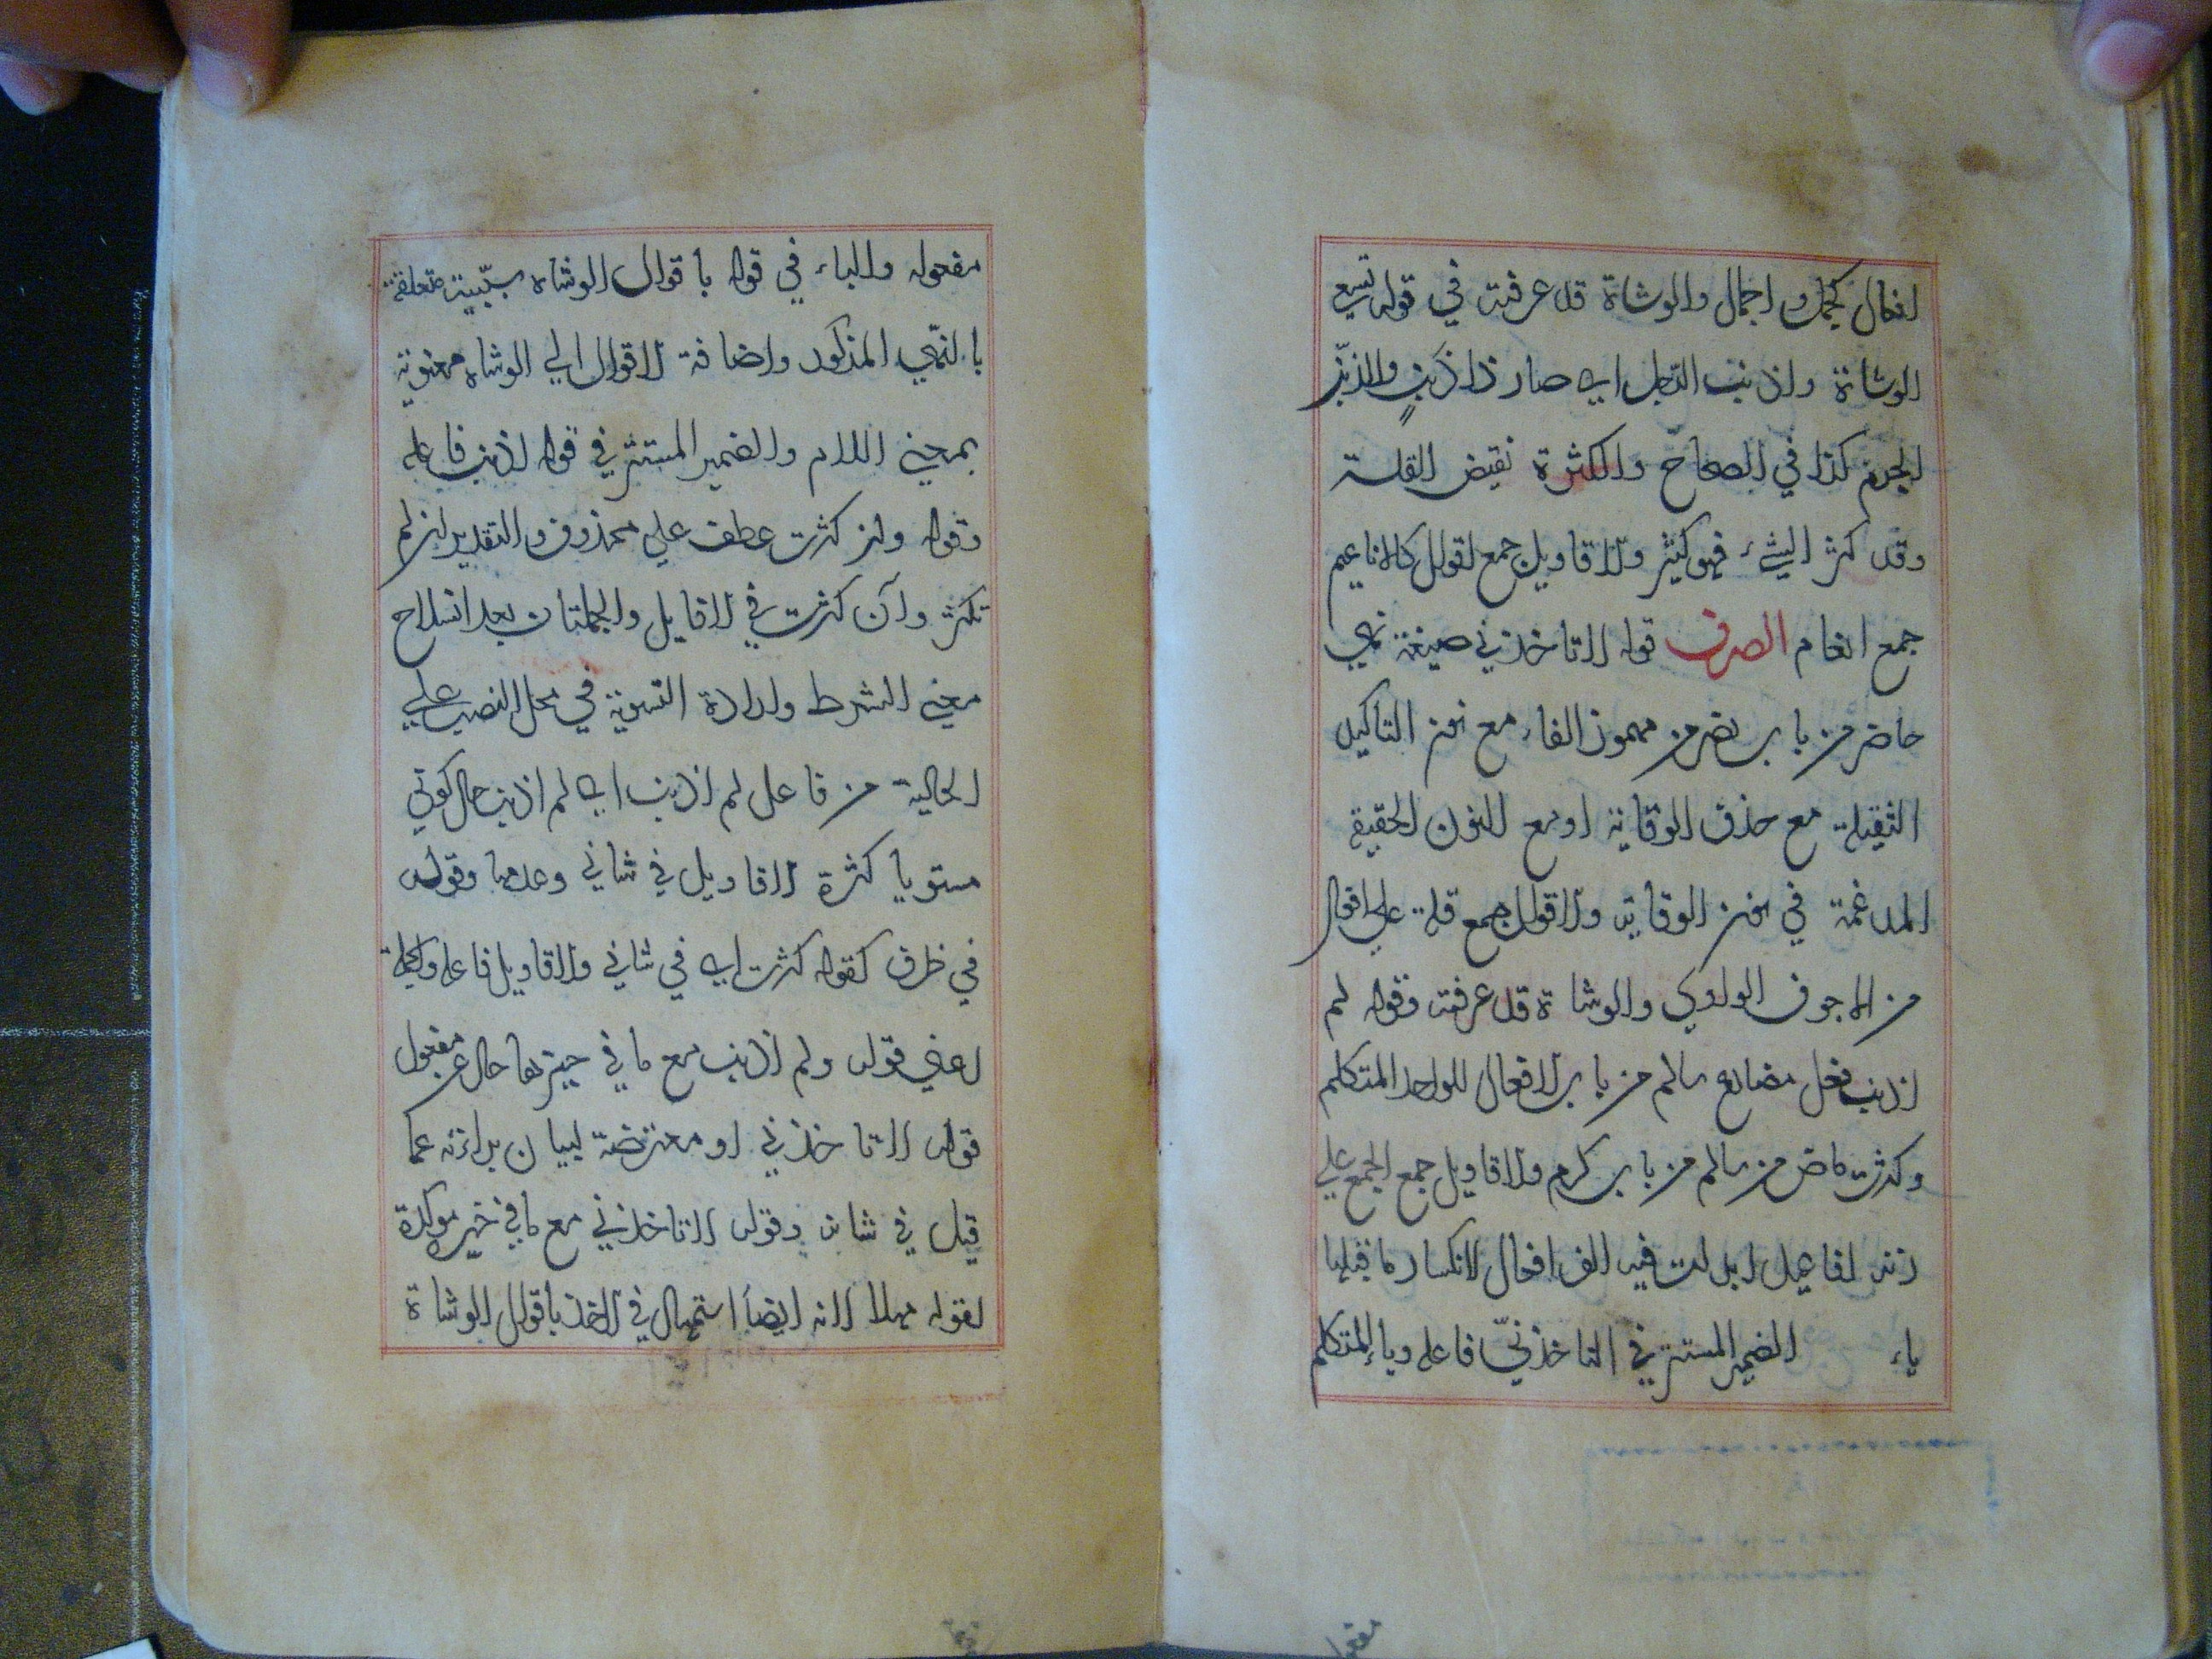 افعال كجمل واجمال والوشاة قد عرفت في قوله تسعي
الوشاة واذنب الرجل اي صار ذا ذنب والذنب
الجرم كذا في الصحاح والكثرة نقيض القلة
وقد كثر الشيء فهو كثير والاقاويل جمع اقوال كالاناعيم
جمع انعام الصرف قوله لا تاخذني صيغة نهي
حاضر من باب نصر من مهموز الفاء مع نون التاكيد
الثقيلة مع حذف الوقاية او مع النون الحقيقة
المدغمة في نون الوقاية والاقوال جمع قلة علي افعال
من الاجوف الواوي والوشاة قد عرفت وقوله لم
اذنب فعل مضارع سالم من باب الافعال للواحد المتكلم
وكثرت ماض من سالم من باب كرم والاقاويل جمع الجمع علي
زنة افاعيل ابدلت فيه الف افعال لانكسار ما قبلها
ياء الضمير المستتر في لا تاخذنّي فاعله وياء المتكلم
مفعوله والباء في قوله باقوال الوشاة سبّبية متعلقة
بالنهي المذكور واضافة الاقوال الي الوشاة معنوية
بمعني اللام والضمير المستتر في قوله اذنب فاعله
وقوله وان كثرت عطف علي محذوف والتقدير ان لم
تكثر وان كثرت في الاقايل والجملتان بعد انسلاخ
معني الشرط وارادة التسوية في محل النصب علي
الحالية من فاعل لم اذنب اي لم اذنب حال كوني
مستويا كثرة الاقاويل في شاني وعدمها وقوله
في ظرف لقوله كثرت اي في شاني والاقاويل فاعله والجملة
اعني قوله ولم اذنب مع ما في حيزها حال عن مفعول
قوله لا تاخذني او معترضة لبيان برائته عما
قيل في شانه وقوله لا تاخذني مع ما في خيره موكدة
لقوله مهلا لانه ايضا استمهال في الاخذ باقوال الوشاة